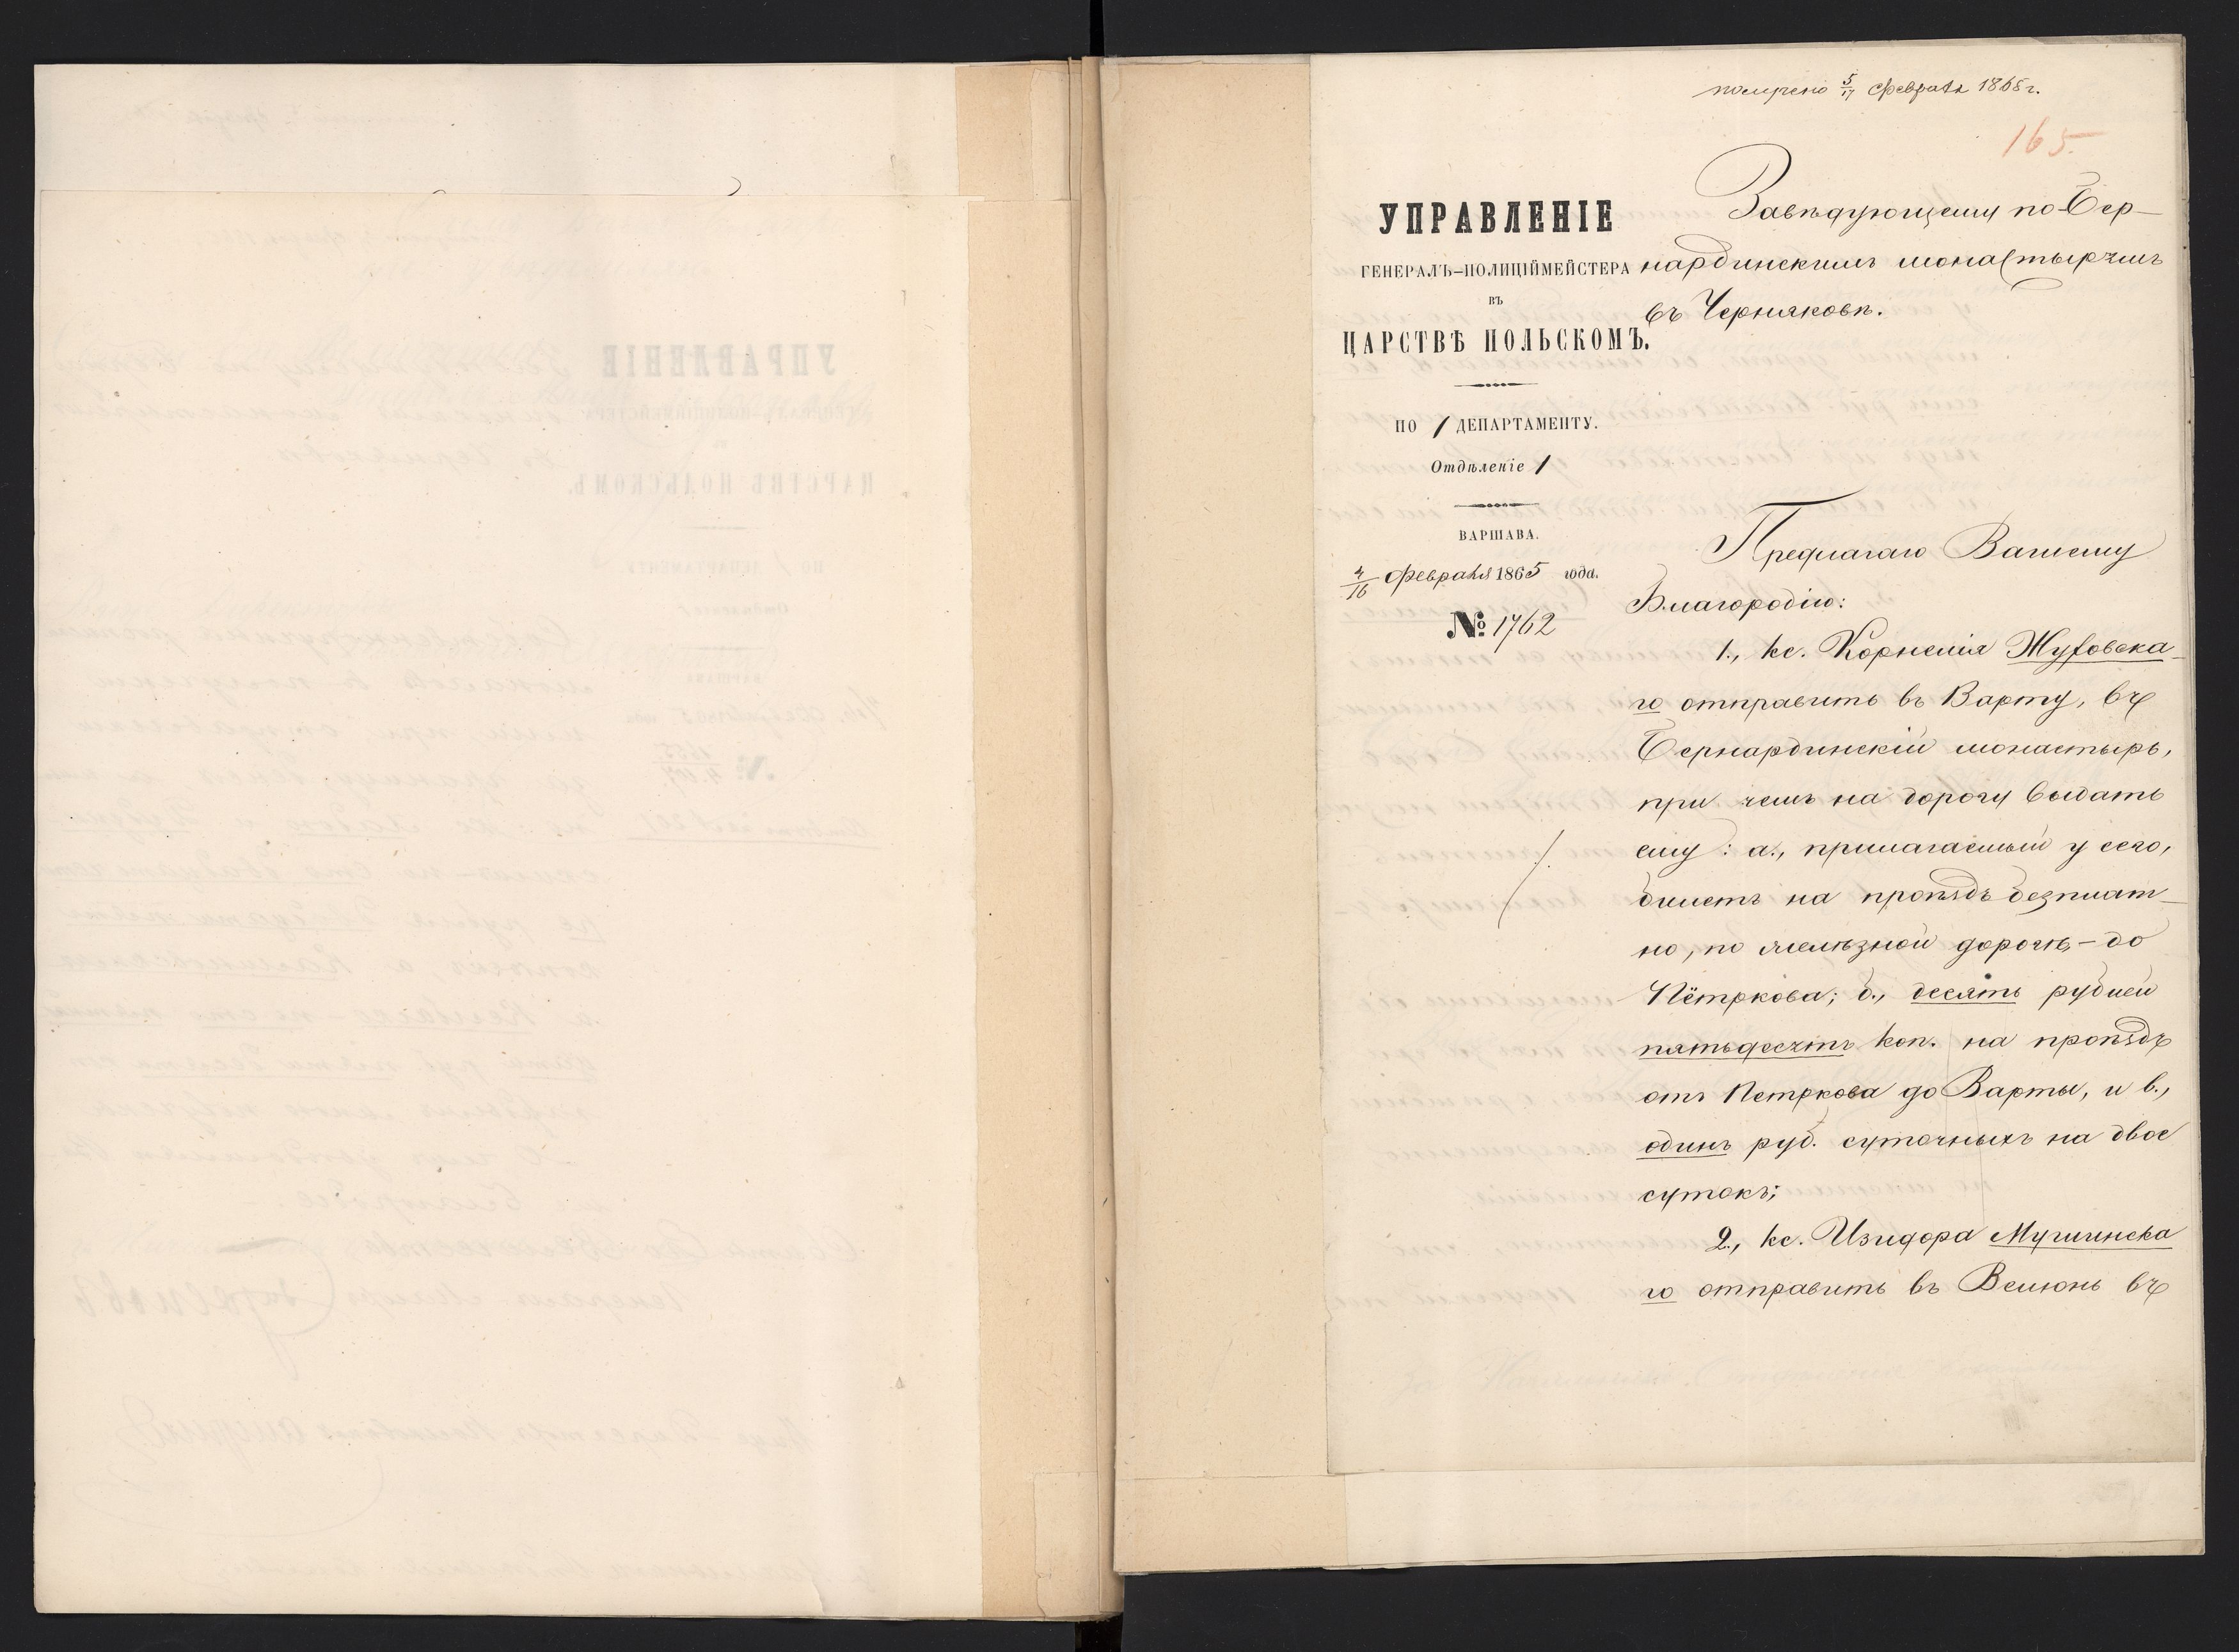 получено 5/17 Февраля 1865 г.
165.
УПРАВЛЕНІЕ
ГЕНЕРАЛЪ-ПОЛИЦІЙМЕЙСТЕРА
ВЪ
ЦАРСТВѢ ПОЛЬСКОМЪ.
ПО 1 ДЕПАРТАМЕНТУ.
Отдѣленіе 1
ВАРШАВА.
4/16 Февраля 1865 года.
№ 1762
Завѣдующему по Бер-
нардинскимъ монастырямъ
въ Черняковѣ.
Предлагаю Вашему
Благородію:
1., кс. Корнелія Жуховска-
го отправить въ Варту, въ
Бернардинскій монастырь,
при чемъ на дорогу выдать
ему: а., прилагаемый у сего,
билетъ на проѣздъ безплат-
но, по желѣзной дорогѣ, - до
Пётркова; б., десять рублей
пятьдесятъ коп. на проѣздъ
отъ Петркова до Варты, и в.,
одинъ руб. суточныхъ на двое
сутокъ;
2., кс. Изидора
го отправить въ Велюнь въ